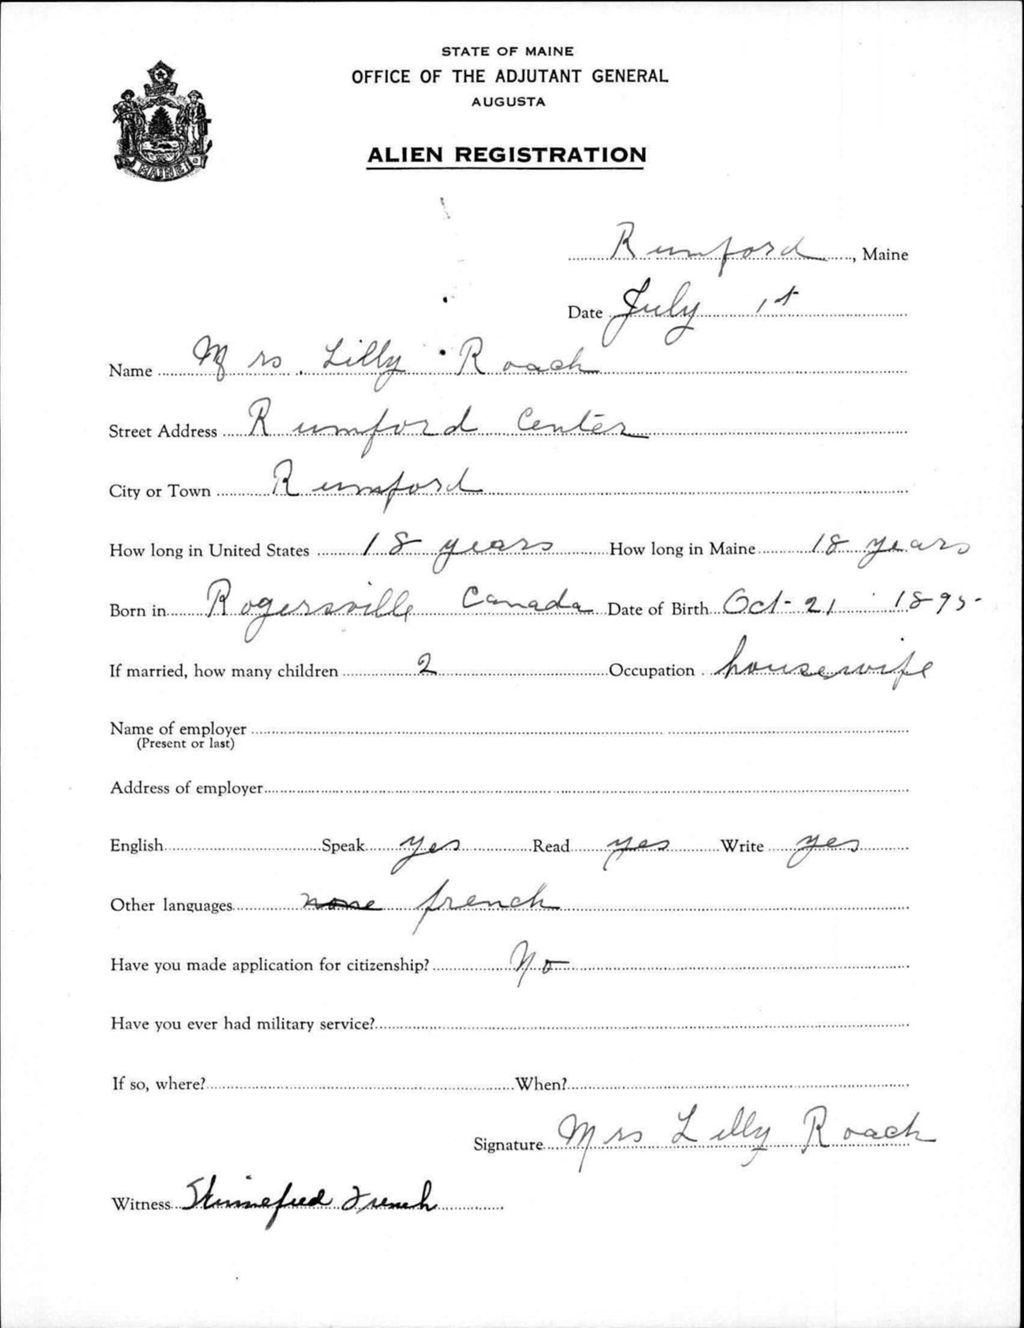 STATE OF MAINE
OFFICE OF THE ADJUTANT GENERAL
AUGUSTA
ALIEN REGISTRATION
MAINE
Rumford, Maine
Date July 1st
Name Mrs. Lilly Roach
Street Address Rumford Center
City or Town Rumford
How long in United States 18 years How long in Maine 18 years
Born in Rogersville Canada Date of Birth Oct - 21 1895
If married, how many children 2 Occupation housewife
Name of employer
(Present or last)
Address of employer
English Speak yes Read yes Write yes
Other languages none french
Have you made application for citizenship? No
Have you ever had military service?
If so, where? When?
Signature Mrs Lilly Roach
Witness French